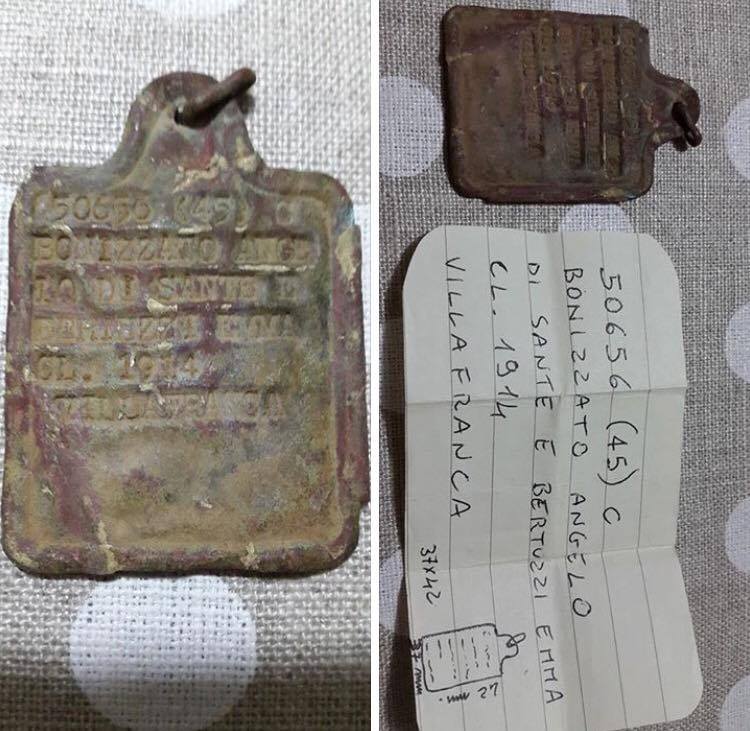 50656 (45) C
BONIZZATO ANGE
LO DI SANTE E
BERTUZZI EMMA
CL. 1914
VILLAFRANCA
50656 (45) C
BONIZZATO ANGELO
DI SANTE E BERTUZZI EMMA
CL. 1914
VILLAFRANCA
37x42
27
37 mm